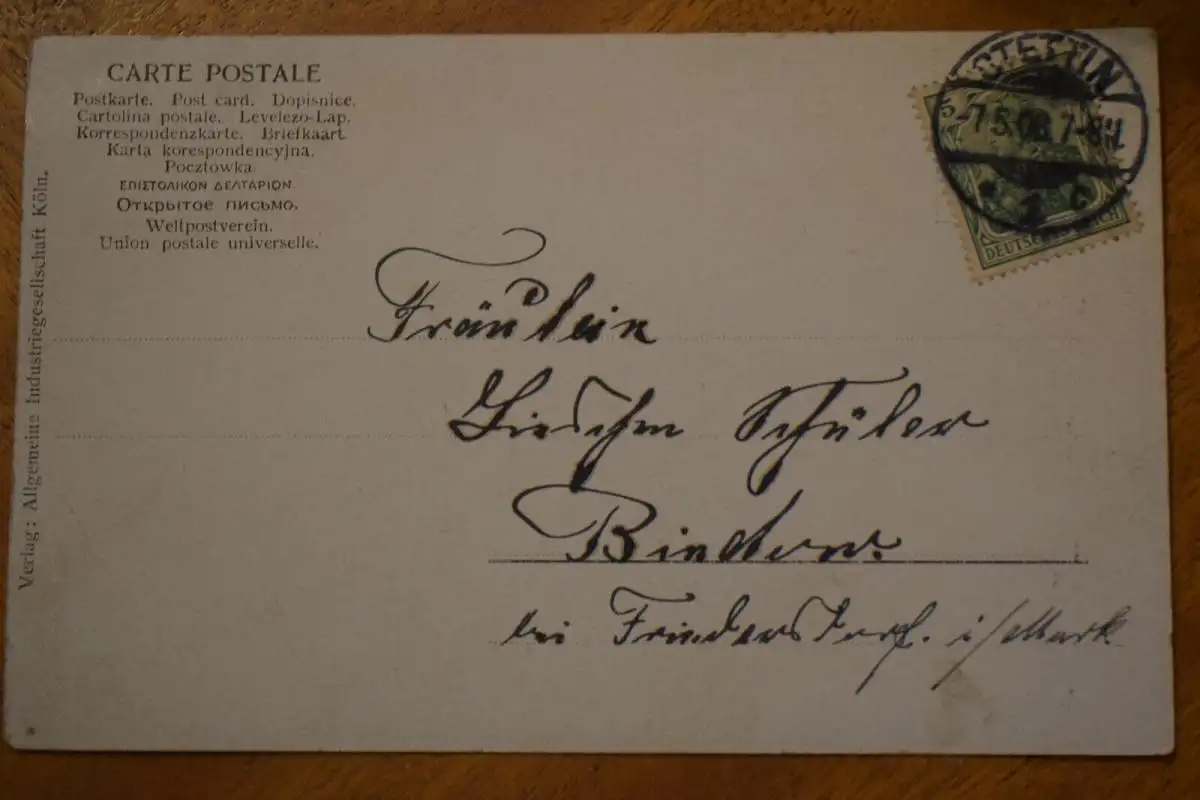 CARTE POSTALE
Postkarte. Post card. Dopisnice.
Cartolina postale. Levelezo-Lap.
Korrespondenzkarte. Briefkaart.
Karta korespondencyjna.
Pocztowka
ΕΠΙΣΤΟΛΙΚΟΝ ΔΕΛΤΑΡΙΟΝ
Открытое письмо.
Weltpostverein.
Union postale universelle.
Verlag: Allgemeine Industriegesellschaft Köln.
STETTIN
DEUTSCHES REICH
Fräulein
Lieschen Schüler
Bindow.
bei Friedersdorf. i/Mark